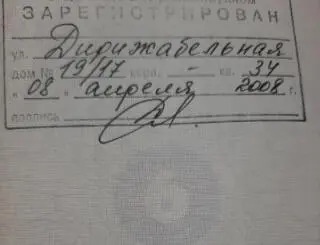 ЗАРЕГИСТРИРОВАН
ул. Дирижабельная
дом № 19/17 корп. - кв. 34
"08" апреля 2008 г.
подпись